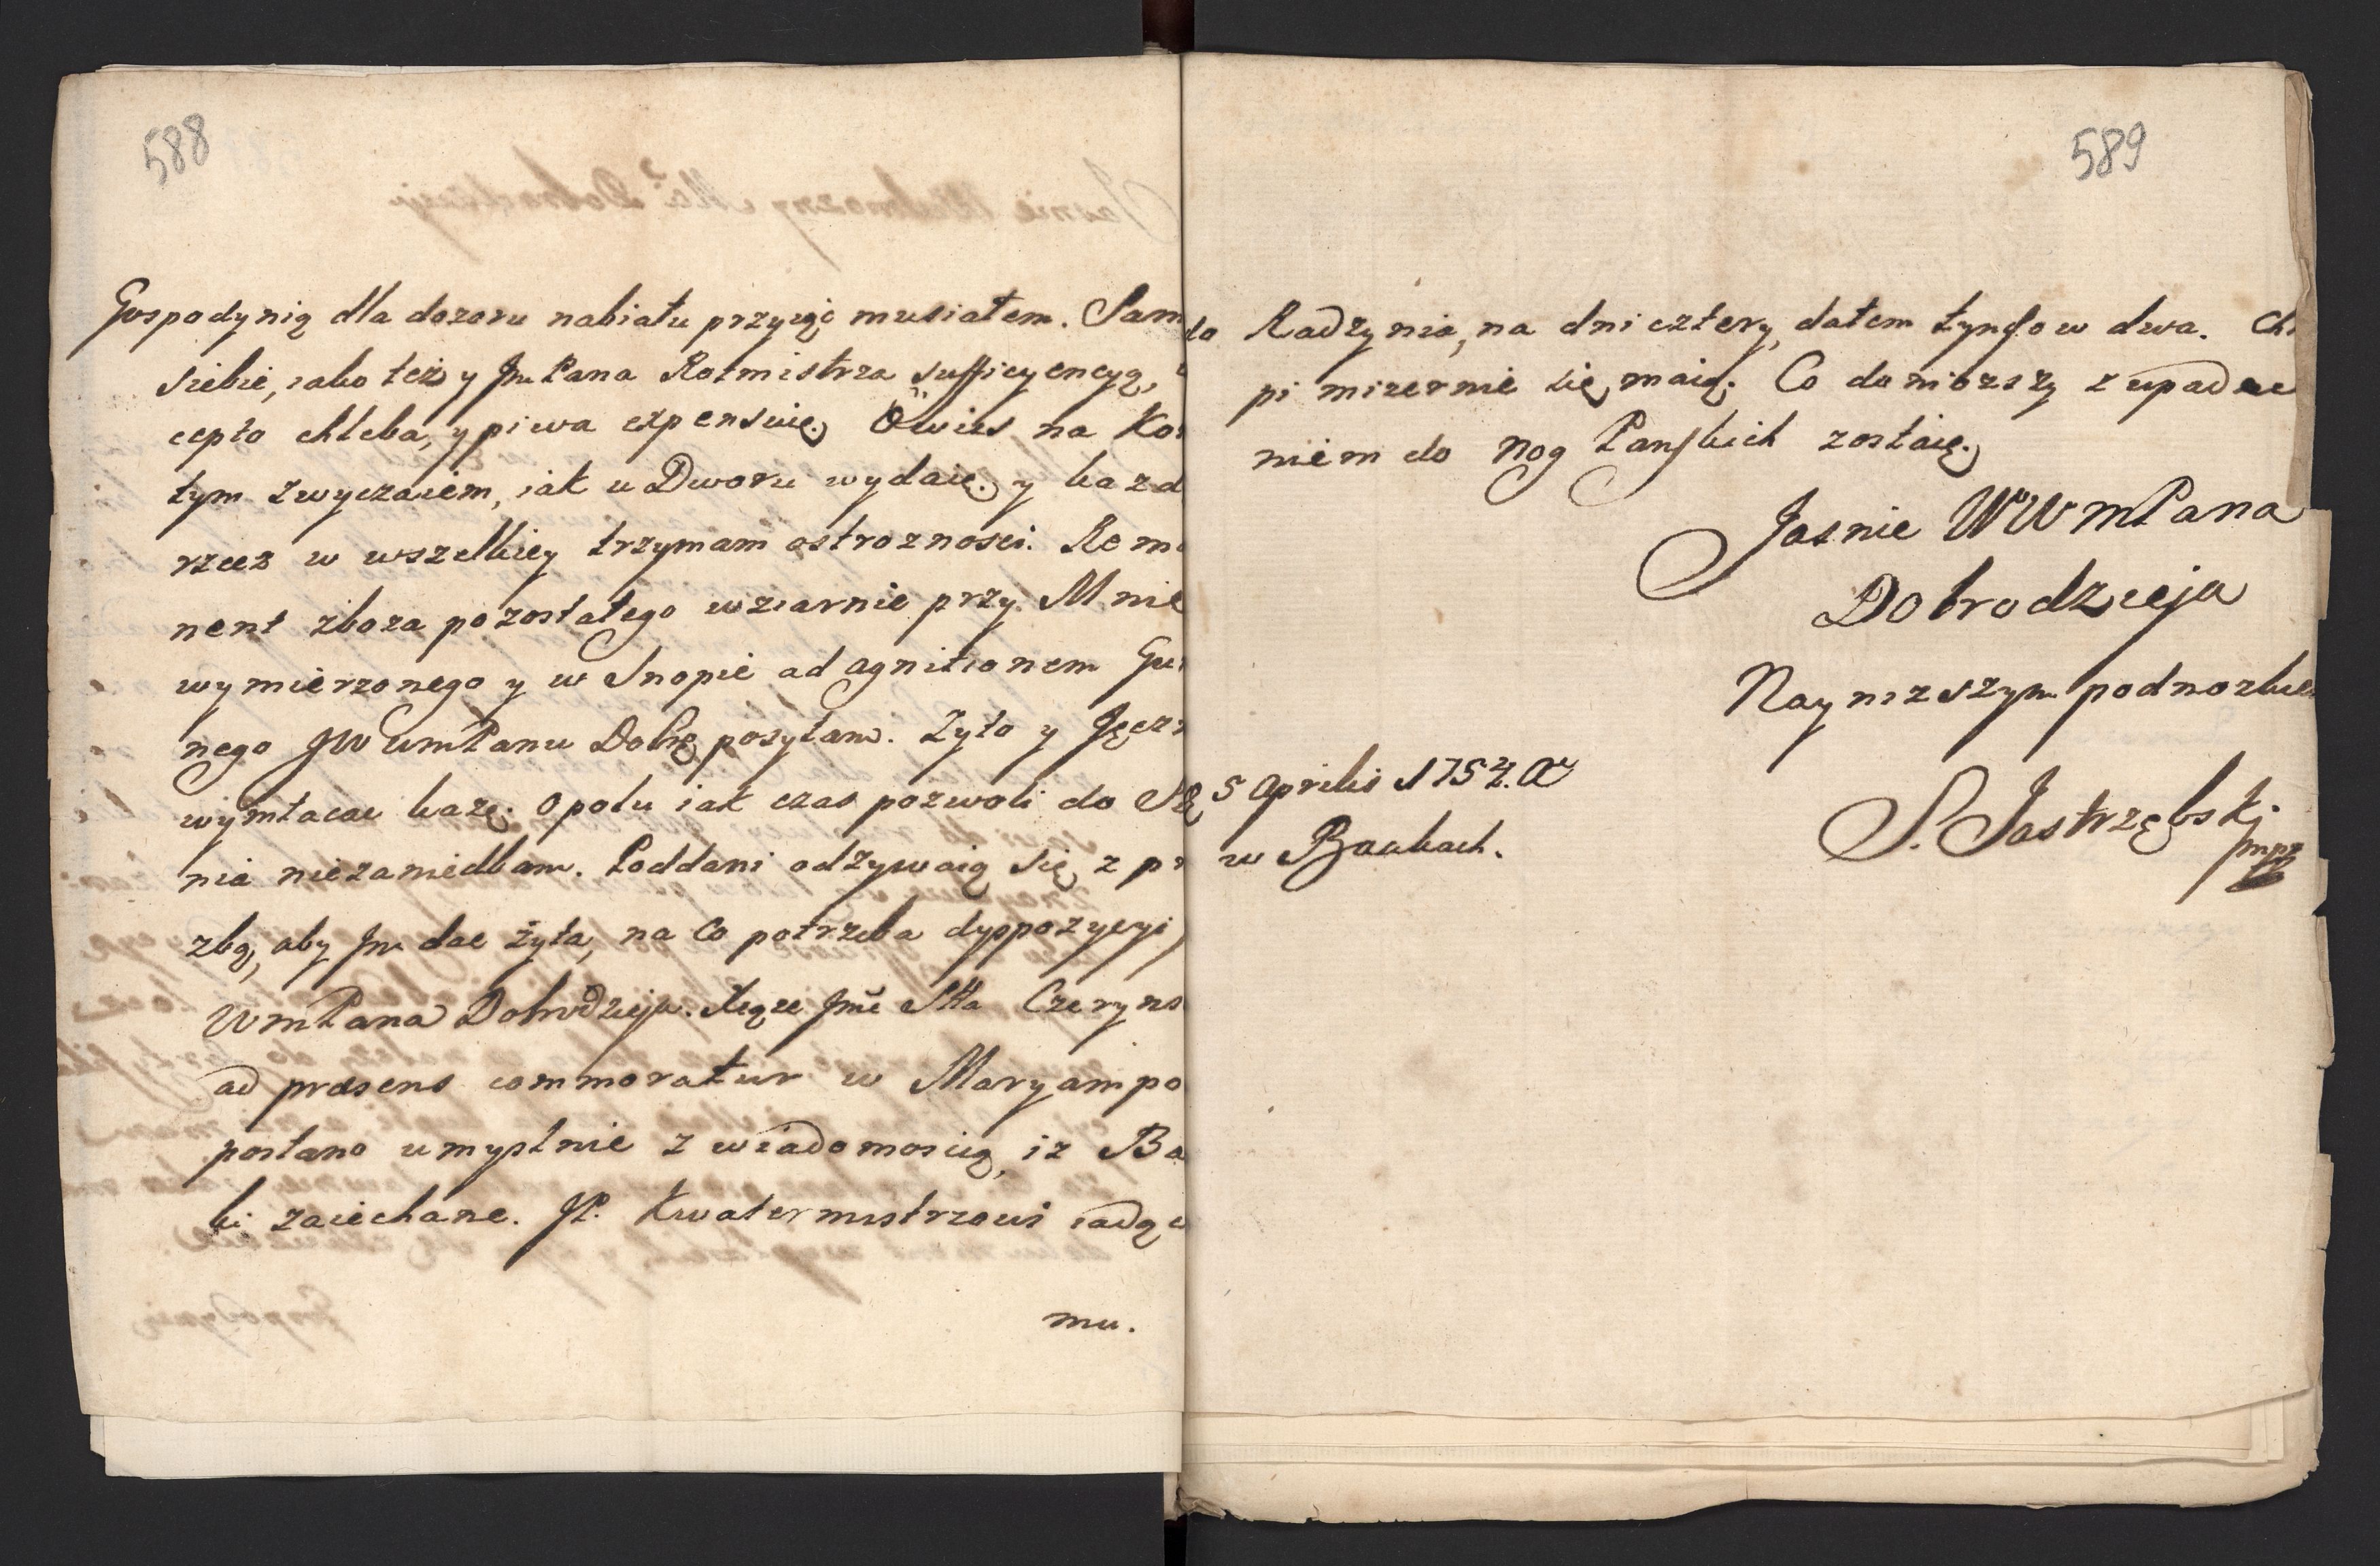 588
Gospodynią dla dozoru nabiału przyiąć musiałem. Sam
siebie, iako też y Jm Pana Rotmistrza sufficyencyą,
cepto chleba, y piwa expensuię. Owies na Ko
tym zwyczaiem, iak u Dworu wydaię. y każd
rzecz w wszelkiey trzymam ostroznosci. Rem
nent zboza pozostałego wziarnie przy Mnie
wymierzonego y w Snopie ad agnitionem Gu
nego JWWmPanu Dobrę posyłam. Zyto y Jęcz
wymłacac karzę. Opolu iak czas pozwoli do
nia niezaniedbam. Poddani odzywaią się z pr
zbą, aby Jm dac żyta, na Co potrzeba dyspozycyi
WmPana Dobrodzieja. Xiąze Jmć Czeryno
ad præsens commoratur w Maryampo
posłano umyslnie z wiadomoscią, iz Ba
ki zaiechane. JP. Kwatermistrzowi iadą
mu.
589
do Radzynia, na dni cztery, dałem tynfow dwa. Ch
pi mizernie się maią. Co doniozszy z upad
niem do nog Panskich zostaię.
Jasnie WWmPana
Dobrodzieja
Naynizszym podnozkie
5 Aprilis 1754. Aº
S. Jastrzębski
mpp
w Bankach.